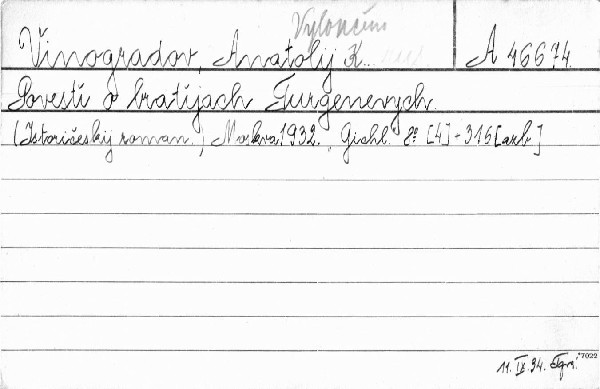 Vinogradov, Anatolij K. A 46674.
Povesti o bratijach Turgenevych.
(Istoričeskij roman.) Moskva, 1932. Gichl. 8° [4]+315 [arb]
*7022
11. IX. 34.